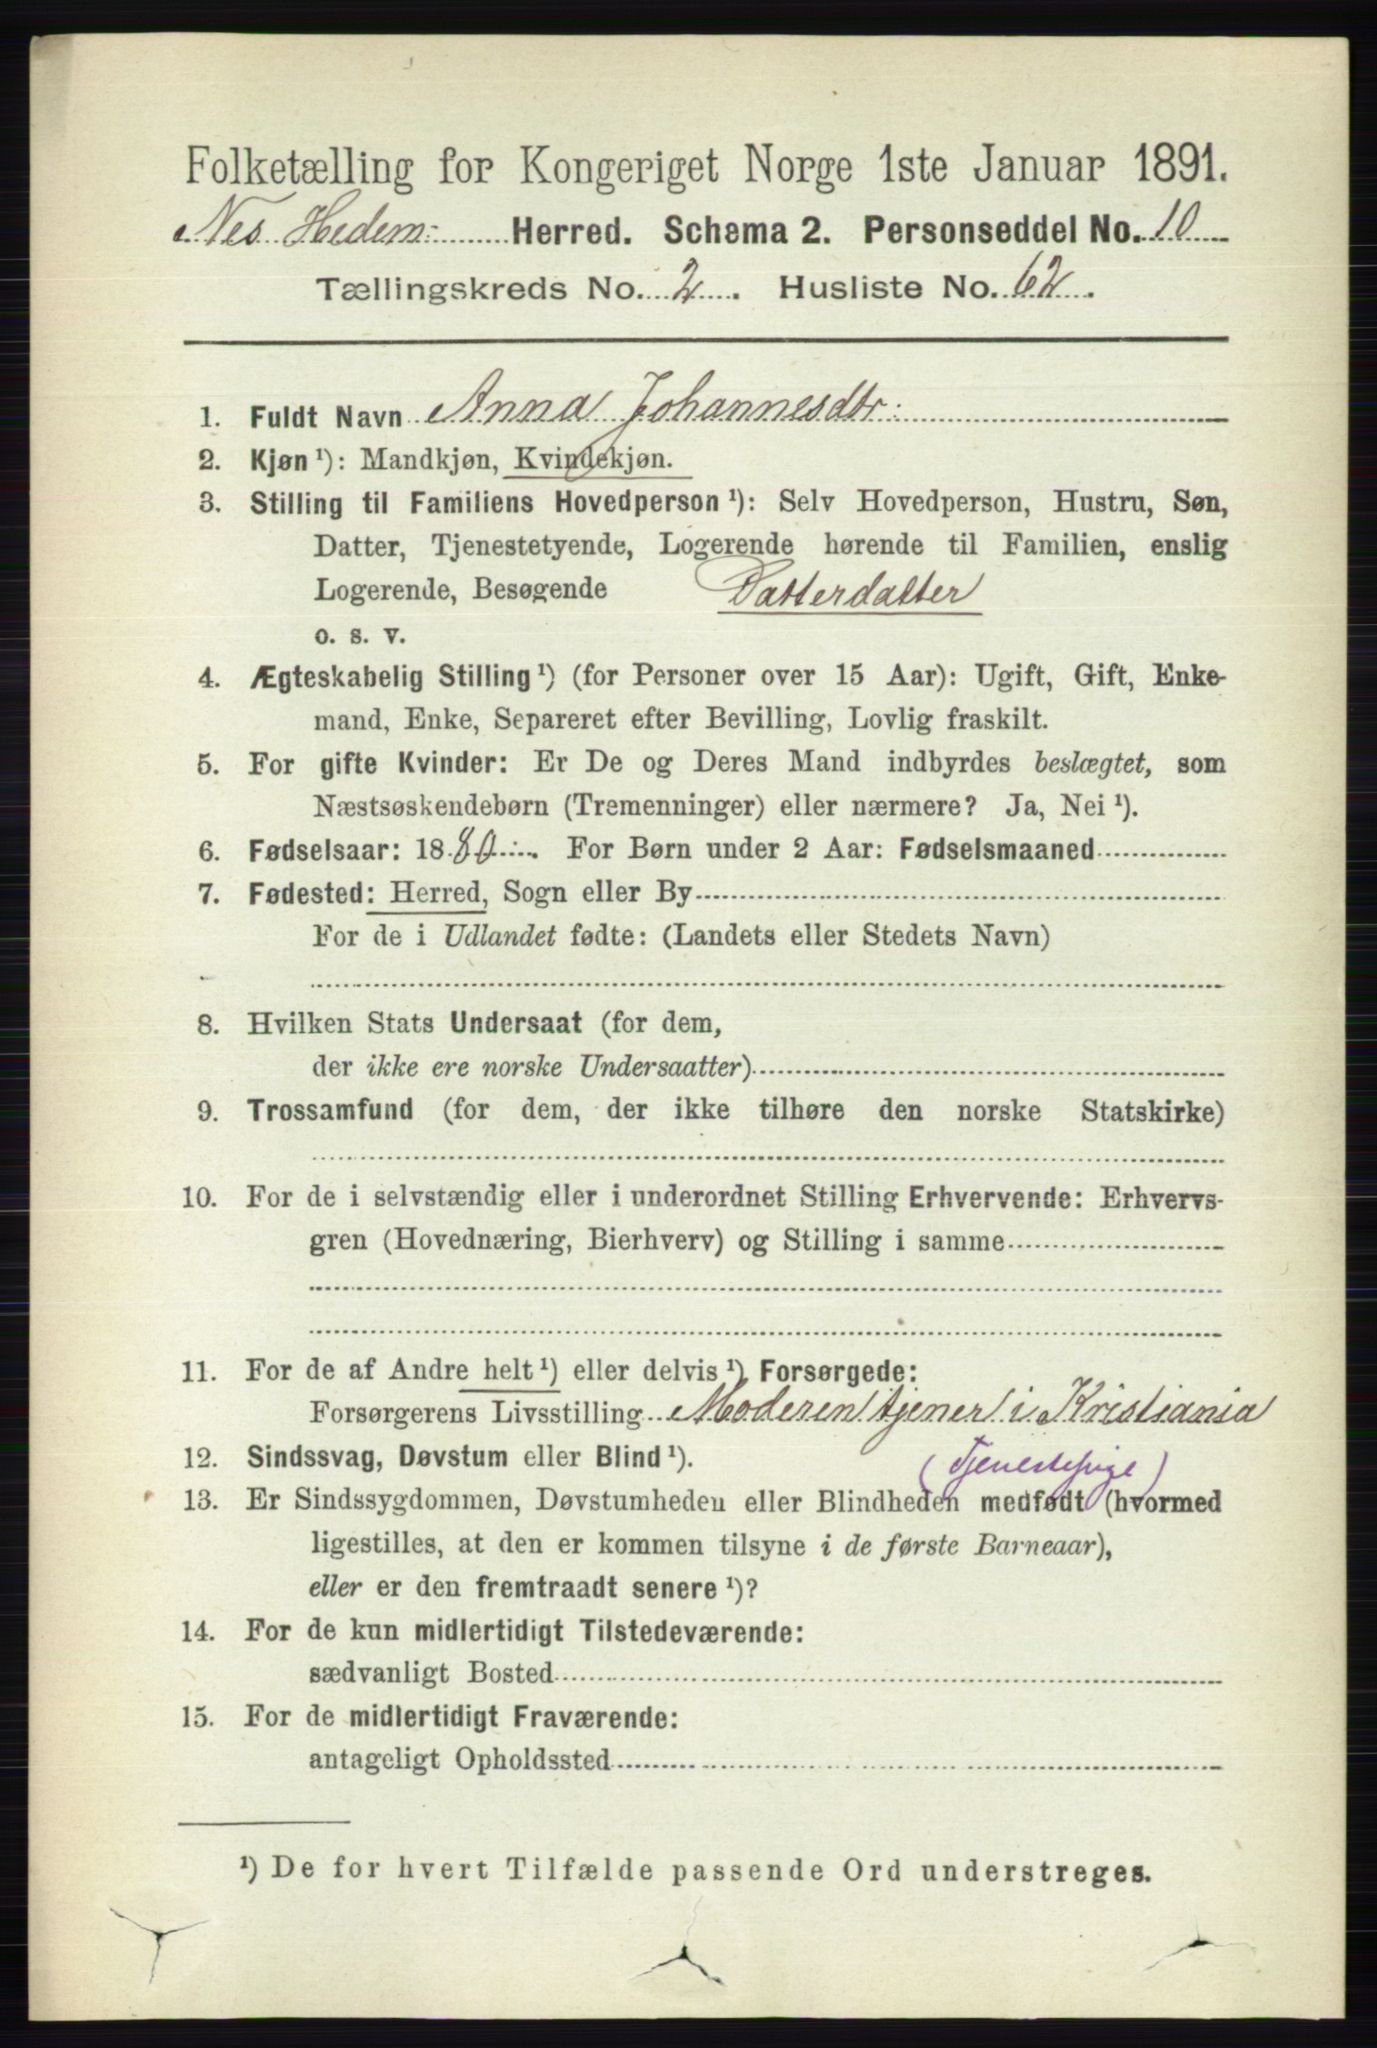 Folketælling for Kongeriget Norge 1ste Januar 1891.
Nes Hedem: Herred. Schema 2. Personseddel No. 10
Tællingskreds No. 2. Husliste No. 62.
1. Fuldt Navn Anna Johannesdtr:
2. Kjøn ¹): Mandkjøn, Kvindekjøn.
3. Stilling til Familiens Hovedperson ¹): Selv Hovedperson, Hustru, Søn,
Datter, Tjenestetyende, Logerende hørende til Familien, enslig
Logerende, Besøgende Datterdatter
o. s. v.
4. Ægteskabelig Stilling ¹) (for Personer over 15 Aar): Ugift, Gift, Enke-
mand, Enke, Separeret efter Bevilling, Lovlig fraskilt.
5. For gifte Kvinder: Er De og Deres Mand indbyrdes beslægtet, som
Næstsøskendebørn (Tremenninger) eller nærmere? Ja, Nei ¹).
6. Fødselsaar: 1880. For Børn under 2 Aar: Fødselsmaaned
7. Fødested: Herred, Sogn eller By
For de i Udlandet fødte: (Landets eller Stedets Navn)
8. Hvilken Stats Undersaat (for dem,
der ikke ere norske Undersaatter)
9. Trossamfund (for dem, der ikke tilhøre den norske Statskirke)
10. For de i selvstændig eller i underordnet Stilling Erhvervende: Erhvervs-
gren (Hovednæring, Bierhverv) og Stilling i samme
11. For de af Andre helt ¹) eller delvis ¹) Forsørgede:
Forsørgerens Livsstilling Moderen tjener i Kristiania
12. Sindssvag, Døvstum eller Blind ¹). (Tjenestepige)
13. Er Sindssygdommen, Døvstumheden eller Blindheden medfødt (hvormed
ligestilles, at den er kommen tilsyne i de første Barneaar),
eller er den fremtraadt senere ¹)?
14. For de kun midlertidigt Tilstedeværende:
sædvanligt Bosted
15. For de midlertidigt Fraværende:
antageligt Opholdssted
¹) De for hvert Tilfælde passende Ord understreges.